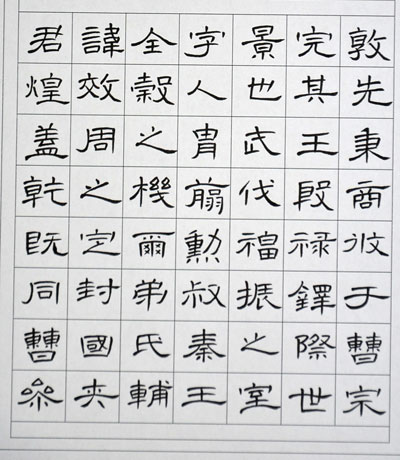 君諱全字景完敦
煌效穀人也其先
蓋周之胄武王秉
乾之機翦伐殷商
既定爾勳福禄攸
同封弟叔振鐸于
曹國氏秦之際曹
參夾輔王室世宗